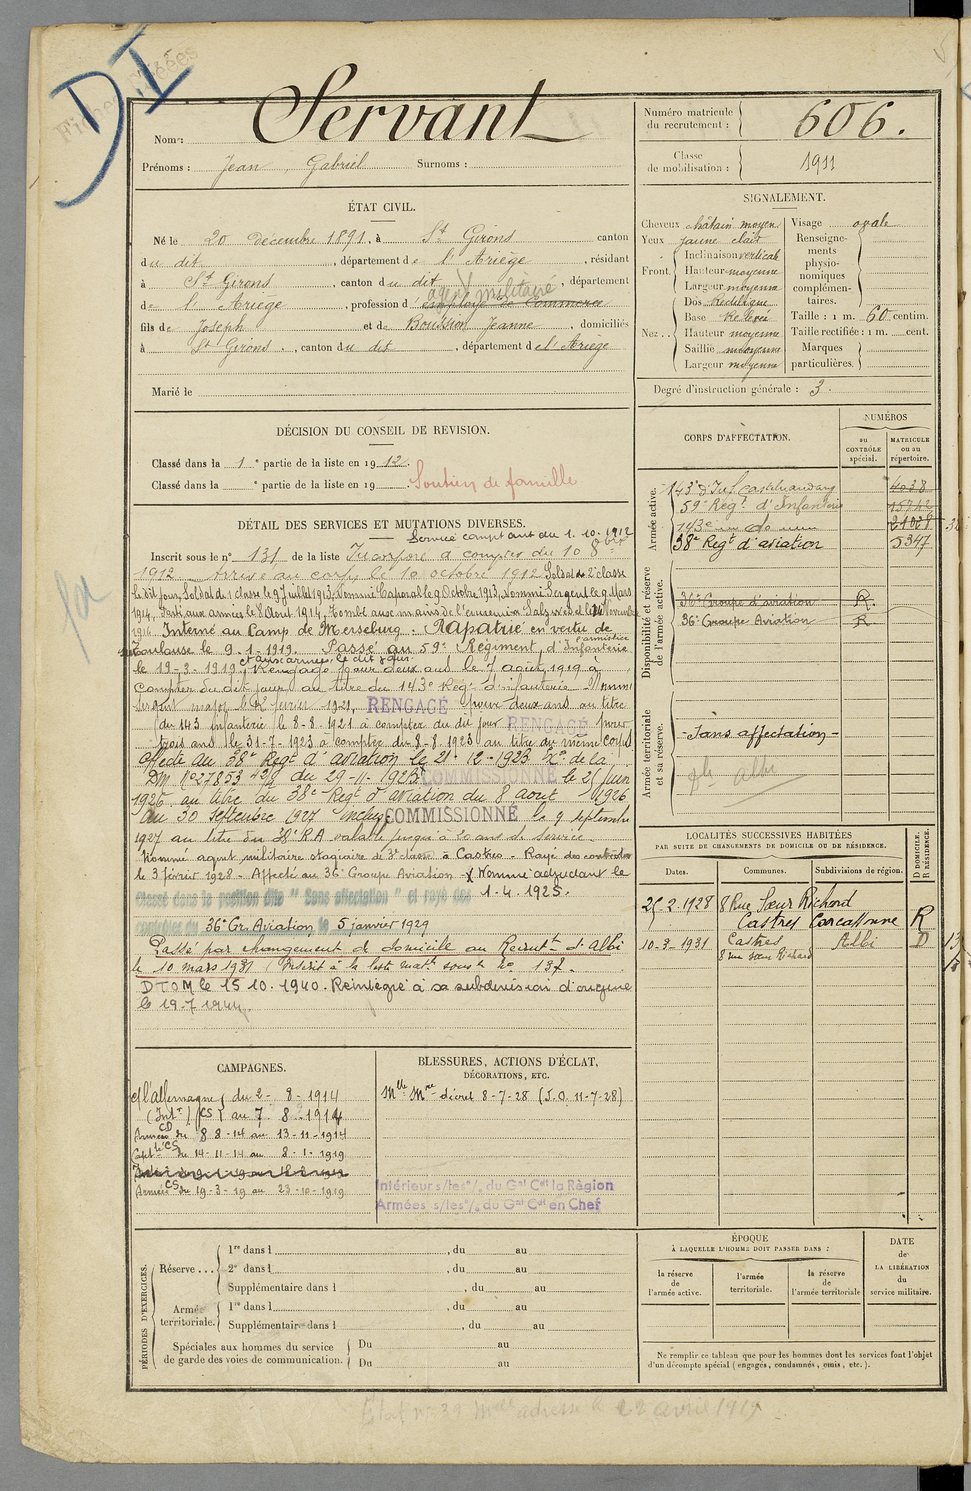 DI
Nom : Servant
Prénoms : Jean, Gabriel Surnoms :
Numéro matricule du recrutement : 606.
Classe de mobilisation : 1911
ÉTAT CIVIL.
Né le 20 décembre 1891, à St Girons canton
du dit, département de l'Ariège, résidant
à St Girons, canton du dit, département
agent militaire
de l'Ariège, profession d'employé de commerce
fils de Joseph et de Boussion Jeanne, domiciliés
à St Girons, canton du dit, département de l'Ariège
Marié le
SIGNALEMENT.
Cheveux châtain moyen
Yeux jaune clair
Front. Inclinaison verticale
Hauteur moyenne
Largeur moyenne
Nez. Dos Rectiligne
Base Relevée
Hauteur moyenne
Saillie moyenne
Largeur moyenne
Visage ovale
Renseignements physionomiques complémentaires.
Taille : 1 m. 60 centim.
Taille rectifiée : 1 m. cent.
Marques particulières.
Degré d'instruction générale : 3.
DÉCISION DU CONSEIL DE REVISION.
Classé dans la 1e partie de la liste en 1912.
Classé dans la e partie de la liste en 19 . Soutien de famille
CORPS D'AFFECTATION.
NUMÉROS
au CONTRÔLE spécial.
MATRICULE ou au répertoire.
Armée active.
143e d'Inf Castelnaudary 4038
59e Régt d'Infanterie 15742
143e do 21028
38e Regt d'aviation 5347
Disponibilité et réserve de l'armée active.
36e Groupe d'aviation R.
36e Groupe Aviation R.
Armée territoriale et sa réserve.
- Sans affectation -
Albi
DÉTAIL DES SERVICES ET MUTATIONS DIVERSES.
Service comptant du 1. 10. 1912
Inscrit sous le n° 131 de la liste Incorporé à compter du 10 8bre
1912 Arrivé au corps le 10 octobre 1912 Soldat de 2e classe
le dit jour, Soldat de 1 classe le 9 Juillet 1913, Nommé Caporal le 9 Octobre 1913, Nommé Sergent le 9 Mars
1914, Parti aux armées le 8 Aout 1914, Tombé aux mains de l'ennemi
1914 Interné au Camp de Merseburg. Rapatrié en vertu de l'armistice
Toulouse le 9-1-1919. Passé au 59e Régiment d'Infanterie
le 19-3-1919 et aux armées le dit jour. Rengagé pour deux ans le 7 aout 1919 à
compter du dit jour au titre du 143e Reg. d'infanterie Nommé
Sergent major le février 1921, RENGAGÉ pour deux ans au titre
du 143 infanterie le 8-8-1921 à compter du dit jour RENGAGÉ pour
trois ans le 31-7-1923 à compter du 8-8-1923 au titre du même corps
Affecté au 38e Regt d'aviation le 21-12-1923 de la
DM N°27853 du 29-11-1923 COMMISSIONNÉ le 25 Juin
1926 au titre du 38e Regt d'aviation du 8 aout 1926
au 30 Septembre 1927 inclus COMMISSIONNÉ le 9 septembre
1927 au titre du 38e R.A valable jusqu'à 20 ans de service
Nommé agent militaire stagiaire de 3e classe à Castres - Rayé des contrôles
le 3 février 1928 - Affecté au 36e Groupe Aviation - Nommé adjudant le
1-4-1925.
Classé dans la position dite " Sans affectation " et rayé des
contrôles du 36e Gr. Aviation le 5 janvier 1929
Passé par changement de domicile au Recrutt d'Albi
le 10 mars 1931 Inscrit à la liste matle sous le n° 137.
DTOM le 15 10. 1940. Réintégré à sa subdivision d'origine
le 19.7 1944.
LOCALITÉS SUCCESSIVES HABITÉES
PAR SUITE DE CHANGEMENTS DE DOMICILE OU DE RÉSIDENCE.
Dates. Communes. Subdivisions de région. D DOMICILE. R RÉSIDENCE.
25-2-1928 8 Rue Sœur Richard
Castres Carcassonne R
10-3-1931 Castres Albi D
8 rue Sœur Richard
CAMPAGNES.
c/ l'allemagne du 2-8-1914
(Intr) (CS) au 7 8-1914
Armées CD du 8 8-14 au 13-11-1914
Captté CS du 14-11-14 au 8-1-1919
Armées CS du 19-3-19 au 23-10-1919
BLESSURES, ACTIONS D'ÉCLAT,
DÉCORATIONS, ETC.
Mlle Mre décret 8-7-28 (J.O. 11-7-28)
Intérieur s/les o/. du Gal Ct la Région
Armées s/les o/. du Gal Ct en Chef
PÉRIODES D'EXERCICES.
Réserve ... 1re dans l , du au
2e dans l , du au
Supplémentaire dans l , du au
Armée territoriale. 1re dans l , du au
Supplémentaire dans l , du au
Spéciales aux hommes du service de garde des voies de communication. Du au
Du au
ÉPOQUE
À LAQUELLE L'HOMME DOIT PASSER DANS :
la réserve de l'armée active.
l'armée territoriale.
la réserve de l'armée territoriale
DATE de LA LIBÉRATION du service militaire.
Ne remplir ce tableau que pour les hommes dont les services font l'objet
d'un décompte spécial (engagés, condamnés, omis, etc.).